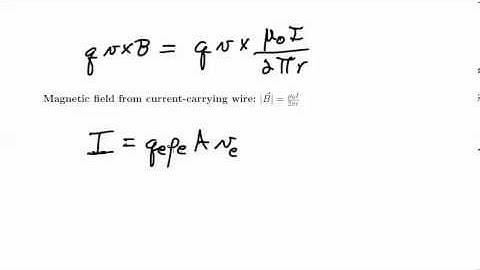 qv×B = qv× μ₀I/2πr
Magnetic field from current-carrying wire: |B⃗| = μ₀I/2πr
I = qₑρₑ A vₑ